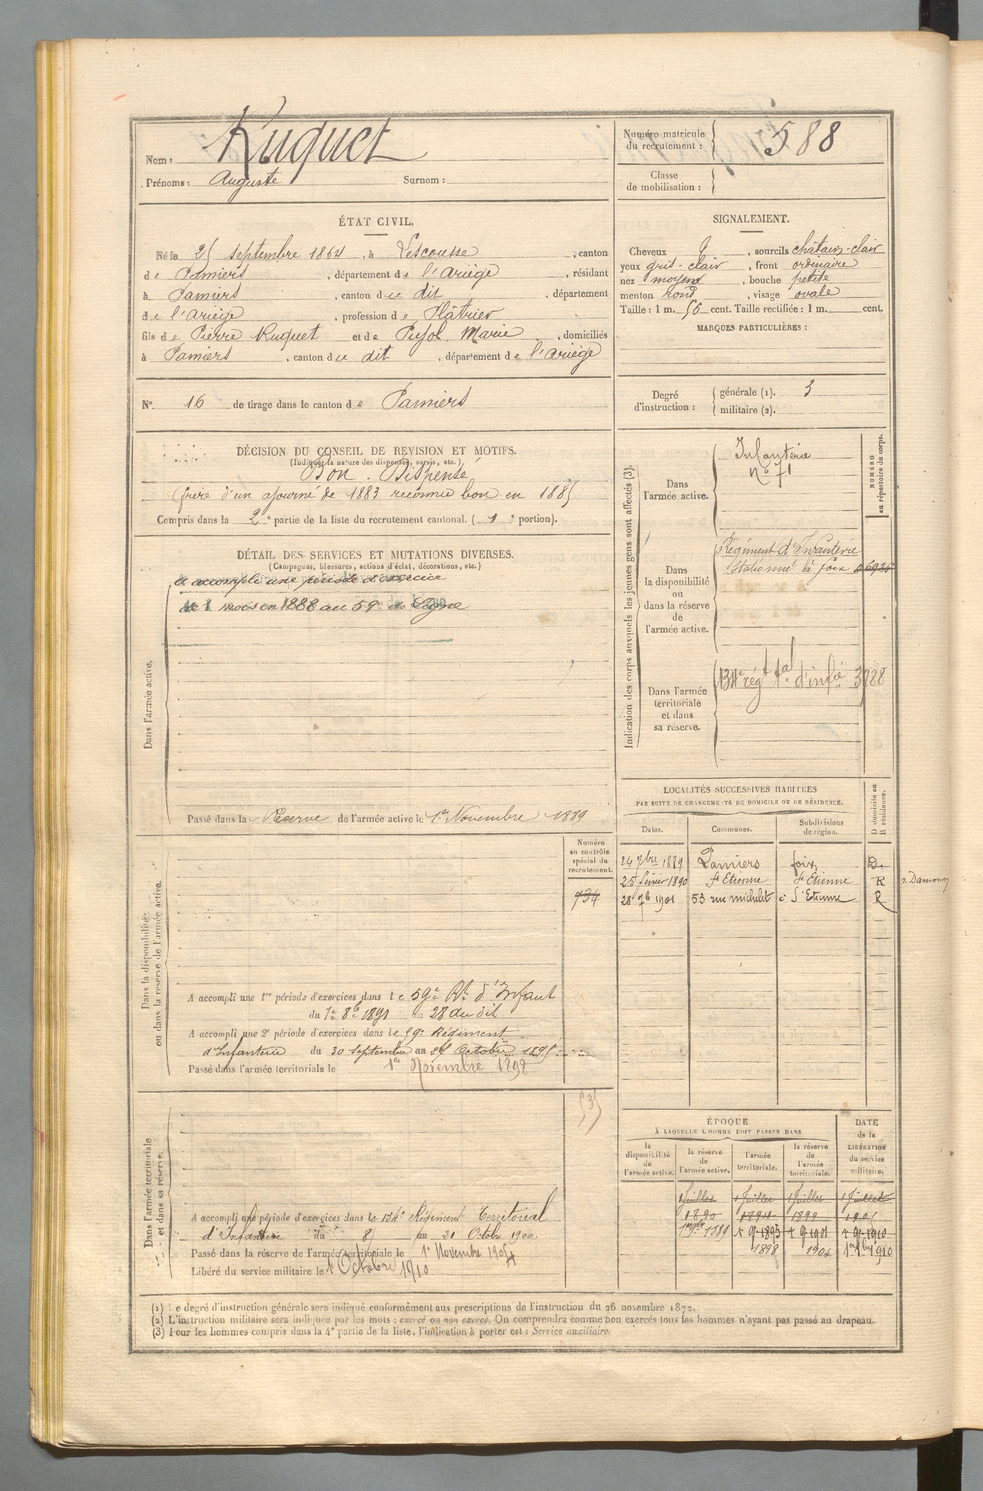 Nom : Ruquet
Prénoms : Auguste Surnom :
Numéro matricule du recrutement : 588
Classe de mobilisation :
ÉTAT CIVIL.
Né le 25 septembre 1864, à Lescousse, canton
de Pamiers, département de l'Ariège, résidant
à Pamiers, canton du dit, département
de l'Ariège, profession de Plâtrier
fils de Pierre Ruquet et de Pujol Marie, domiciliés
à Pamiers, canton du dit, département de l'Ariège
SIGNALEMENT.
Cheveux &, sourcils châtain-clair
yeux gris-clair, front ordinaire
nez moyen, bouche petite
menton rond, visage ovale
Taille : 1 m. 56 cent. Taille rectifiée : 1 m. cent.
MARQUES PARTICULIÈRES :
N° 16 de tirage dans le canton de Pamiers
Degré d'instruction : générale (1). 3
militaire (2).
DÉCISION DU CONSEIL DE REVISION ET MOTIFS.
(Indiquer la nature des dispenses, sursis, etc.)
Bon. Dispensé
frère d'un ajourné de 1883 reconnu bon en 1885
Compris dans la 2e partie de la liste du recrutement cantonal. (1e portion).
DÉTAIL DES SERVICES ET MUTATIONS DIVERSES.
(Campagnes, blessures, actions d'éclat, décorations, etc.)
Dans l'armée active.
a accompli une période d'exercice
de 1 mois en 1888 au 59e de Ligne
Passé dans la Réserve de l'armée active le 1er Novembre 1889
Indication des corps auxquels les jeunes gens sont affectés (3).
NUMÉRO au répertoire du corps.
Dans l'armée active.
Infanterie
N° 71
Dans la disponibilité ou dans la réserve de l'armée active.
Régiment d'Infanterie
Stationné à foix
Dans l'armée territoriale et dans sa réserve.
134e régt tal d'infie 3888
LOCALITÉS SUCCESSIVES HABITÉES
PAR SUITE DE CHANGEMENTS DE DOMICILE OU DE RÉSIDENCE.
Dates. Communes. Subdivisions de région. D domicile ou R résidence.
24 7bre 1889 Pamiers foix D.
25 février 1890 St Etienne St Etienne R
28 7b 1901 53 rue michelet à St Etienne R
Dans la disponibilité ou dans la réserve de l'armée active.
Numéro au contrôle spécial du recrutement.
734
A accompli une 1re période d'exercices dans le 59e Rt d'Infant
du 1er 8bre 1891 au 28 du dit
A accompli une 2e période d'exercices dans le 59e Régiment
d'Infanterie du 30 septembre au 27 Octobre 1895
Passé dans l'armée territoriale le 1er Novembre 1898
Dans l'armée territoriale et dans sa réserve.
(3)
A accompli une période d'exercices dans le 134e Régiment Territorial
d'Infanterie du 8 au 21 Octobre 1900
Passé dans la réserve de l'armée territoriale le 1er Novembre 1904
Libéré du service militaire le 1 Octobre 1910
ÉPOQUE
À LAQUELLE L'HOMME DOIT PASSER DANS
la disponibilité de l'armée active. la réserve de l'armée active. l'armée territoriale. la réserve de l'armée territoriale. DATE de la LIBÉRATION du service militaire.
1 Juillet 1 Juillet 1 Juillet 1 Juillet
1890 1894 1899 1905
1889
1898 1904 1910
(1) Le degré d'instruction générale sera indiqué conformément aux prescriptions de l'instruction du 26 novembre 1872.
(2) L'instruction militaire sera indiquée par les mots : exercé ou non exercé. On comprendra comme non exercés tous les hommes n'ayant pas passé au drapeau.
(3) Pour les hommes compris dans la 4e partie de la liste, l'indication à porter est : Service auxiliaire.